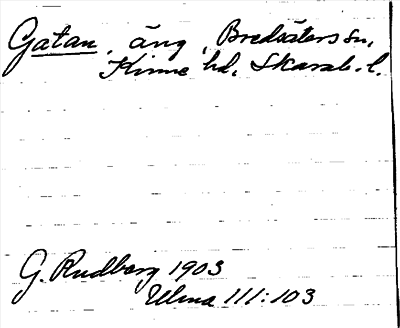 Gatan, äng, Bredsäters sn,
Kinne hd, Skarab. l.
G. Rudberg 1903
Ulma 111:103